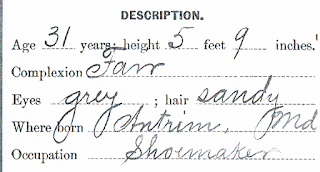 DESCRIPTION.
Age 31 years; height 5 feet 9 inches.
Complexion Fair
Eyes grey ; hair sandy
Where born Antrim, Ind
Occupation Shoemaker